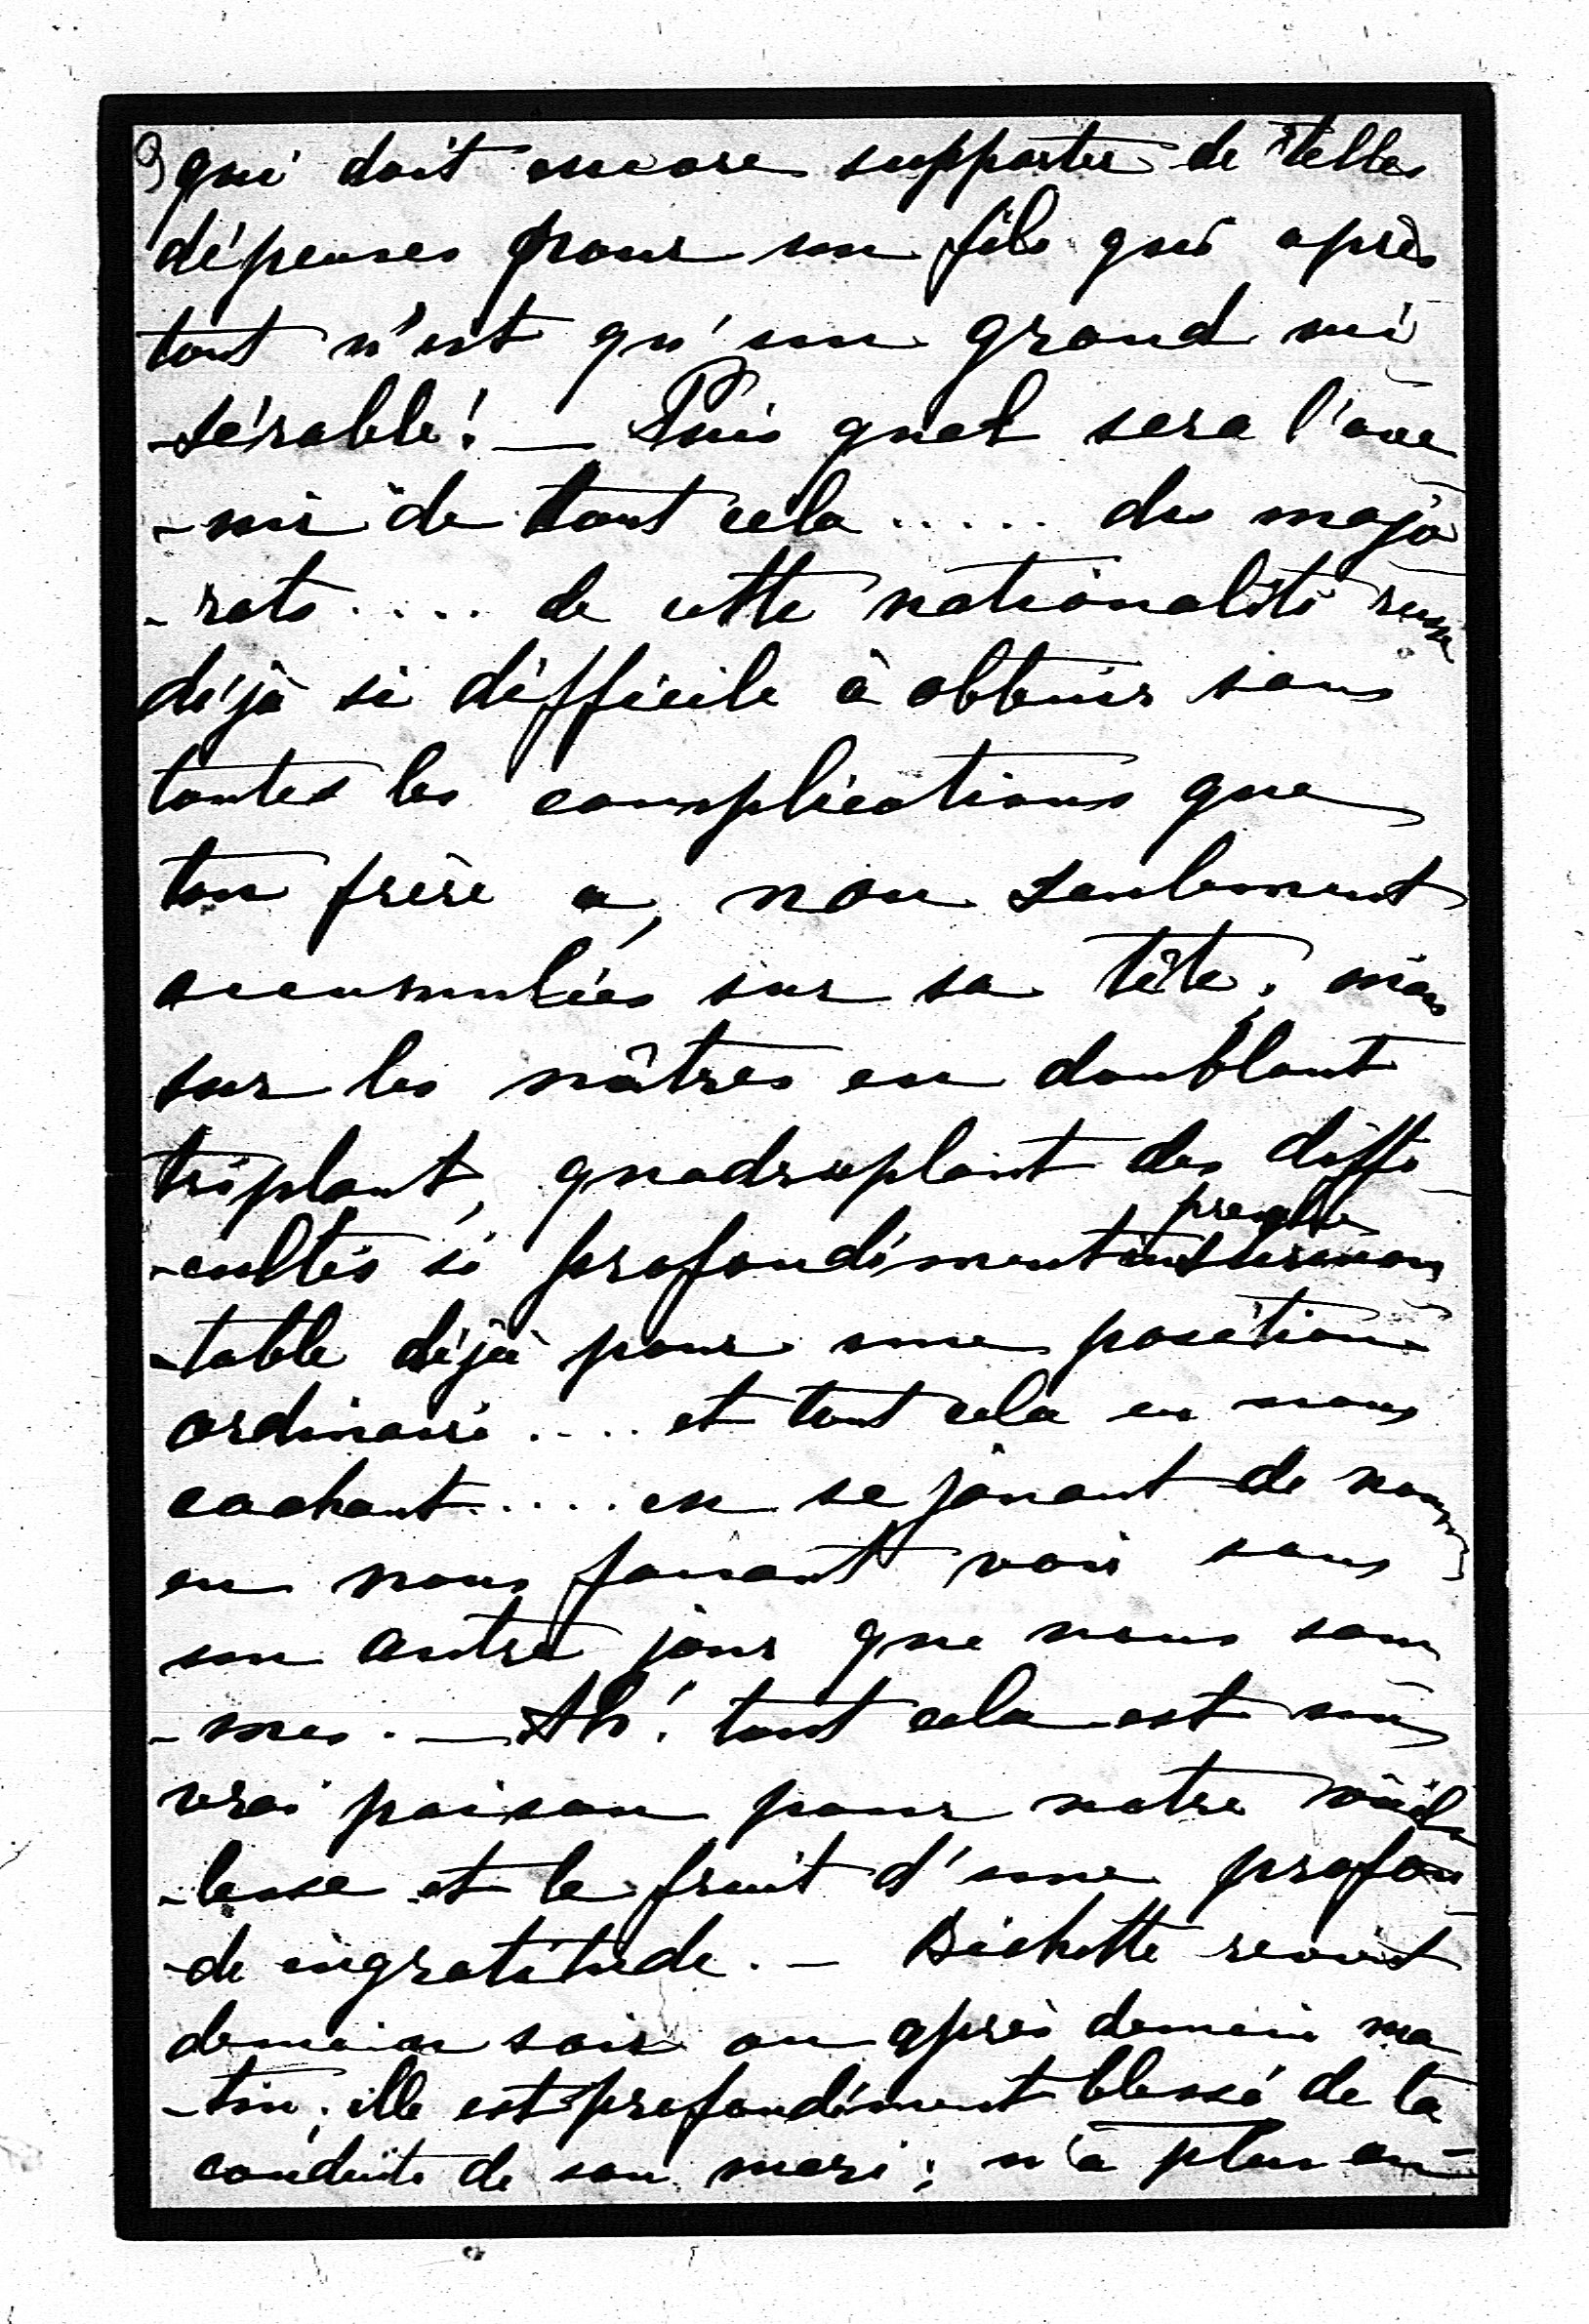 3) qui doit encore supporter de telles
dépenses pour un fils qui après
tout n'est qu'un grand mi
-sérable! — Puis quel sera l'ave
-nir de tout cela ..... des majo
-rats .... de cette nationalité russe
déjà si difficile à obtenir sans
toutes les complications que
ton frère a, non seulement
accumulées sur sa tête, mais
sur les nôtres en doublant
triplant, quadruplant des diffi
-cultés si profondément presque insurmon
-table déjà pour une position
ordinaire .... et tout cela en nous
cachant .... en se jouant de nous,
en nous faisant voir sous
un autre jour que nous som
-mes. — Ah! tout cela est un
vrai poison pour notre vieil
-lesse et le fruit d'une profon
-de ingratitude. — Bichette revient
demain soir ou après demain ma
-tin; elle est profondément blessé de la
conduite de son mari; n'a plus au-